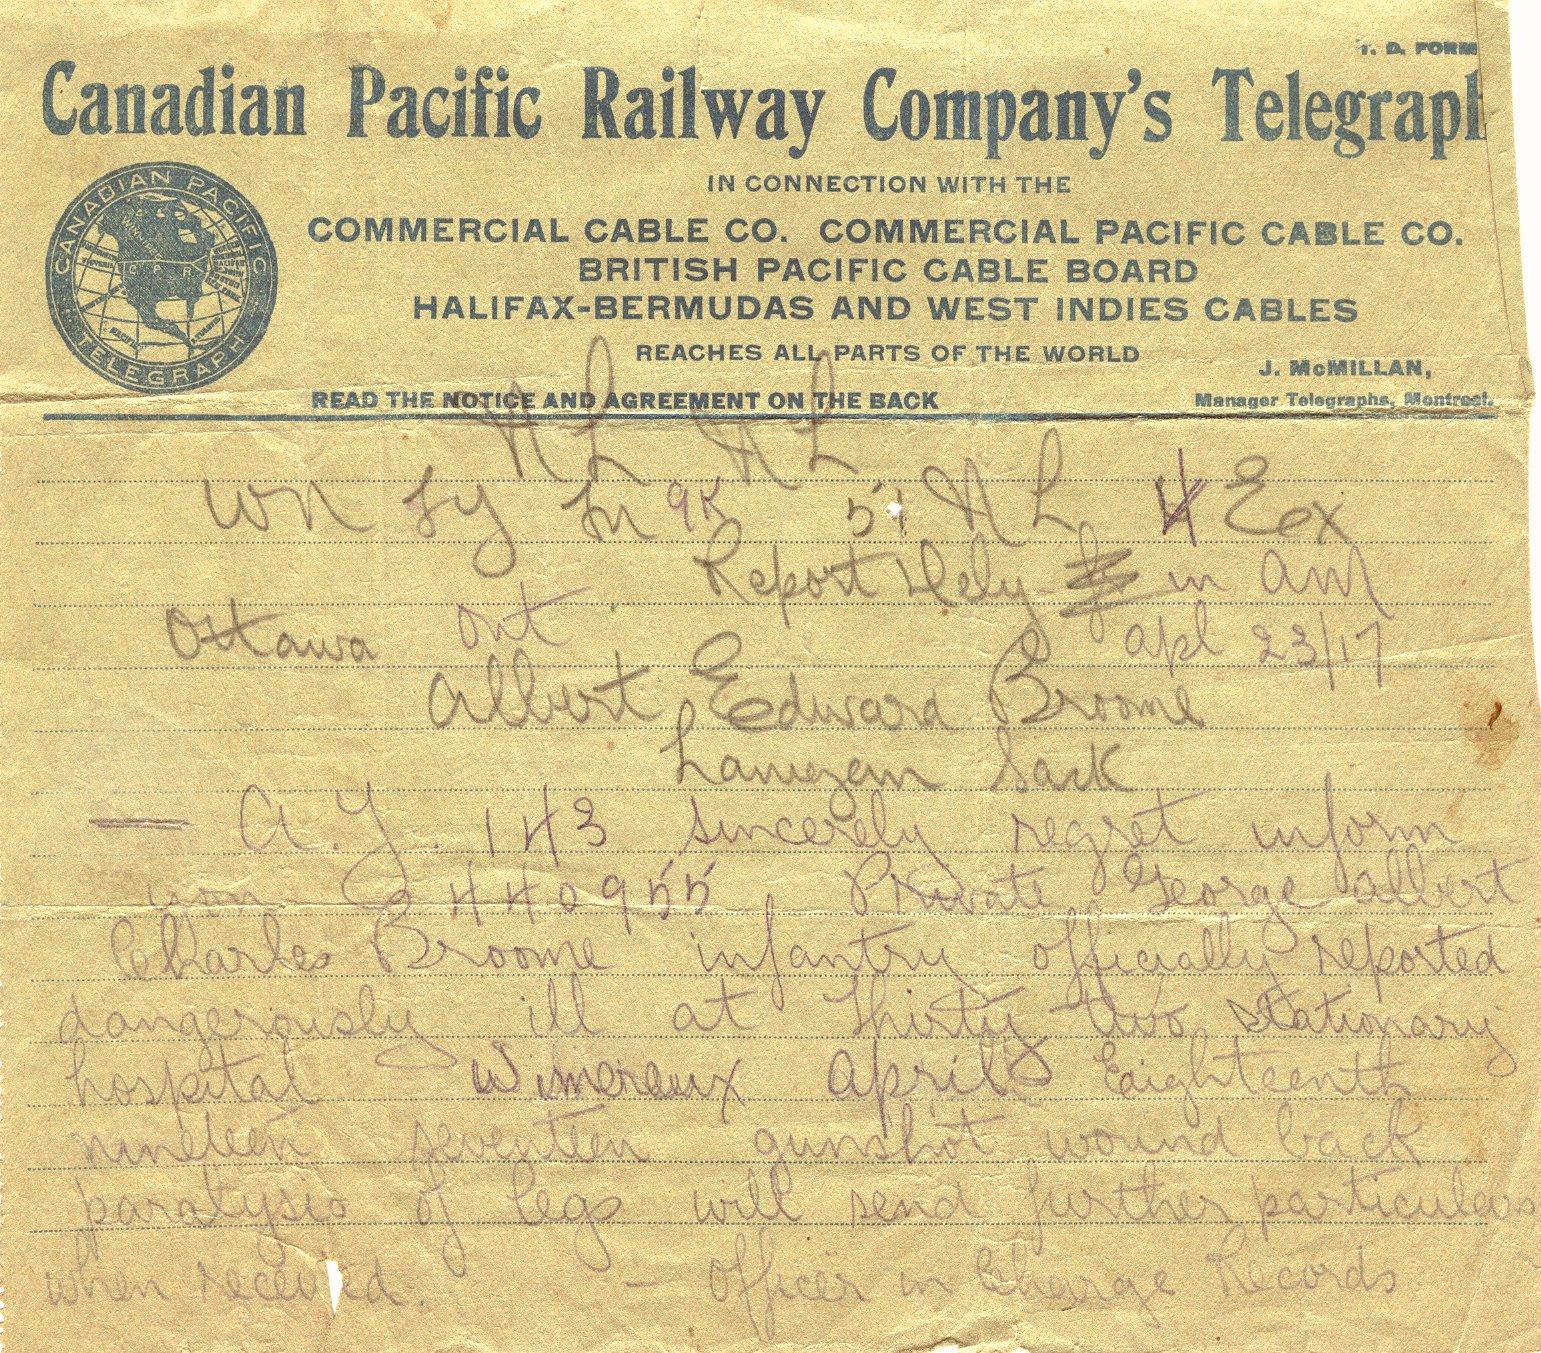 T. D. FORM
Canadian Pacific Railway Company's Telegraph
IN CONNECTION WITH THE
COMMERCIAL CABLE CO. COMMERCIAL PACIFIC CABLE CO.
BRITISH PACIFIC CABLE BOARD
HALIFAX-BERMUDAS AND WEST INDIES CABLES
REACHES ALL PARTS OF THE WORLD
J. McMILLAN,
READ THE NOTICE AND AGREEMENT ON THE BACK
Manager Telegraphs, Montreal.
CANADIAN PACIFIC
TELEGRAPH
C P R
NL NL
WN 9K 51 NL 4 Ex
Report Dely in AM
Ottawa Ont Apl 23/17
Albert Edward Broome
Lanigan Sask
A.Y. 143 sincerely regret inform
you 440955 Private George Albert
Charles Broome infantry officially reported
dangerously ill at thirty two stationary
hospital Wimereux April Eighteenth
nineteen seventeen gunshot wound back
paralysis of legs will send further particulars
when received. - Officer in Charge Records